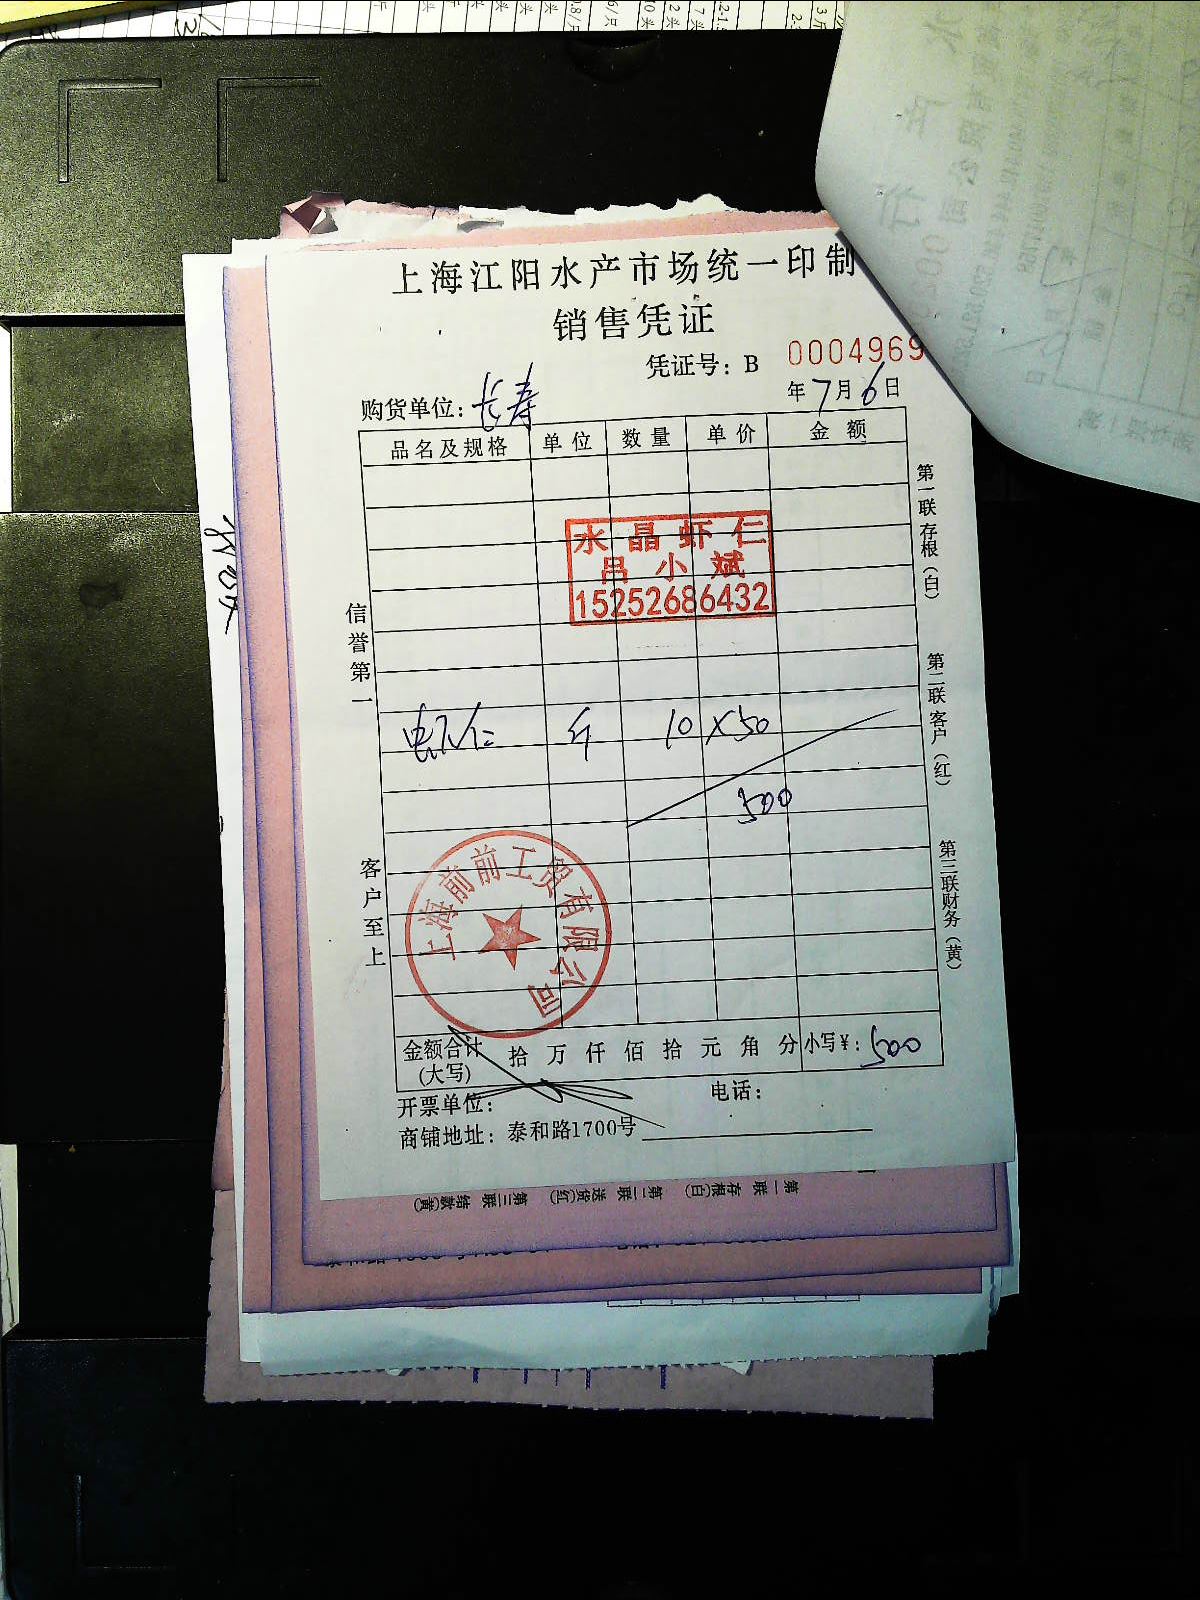 上海江阳水产市场统一印制
销售凭证
凭证号：B 0004969
购货单位：长寿
年7月6日
品名及规格 单位 数量 单价 金额
水晶虾仁
吕小斌
15252686432
斤 10 ×50
500
信誉第一
客户至上
第一联存根（白）
第二联客户（红）
第三联财务（黄）
上海前前工贸有限公司
金额合计（大写） 拾万仟佰拾元角分 小写¥：500
开票单位： 电话：
商铺地址：泰和路1700号
第一联 存根(白) 第二联 送货(红) 第三联 结款(黄)